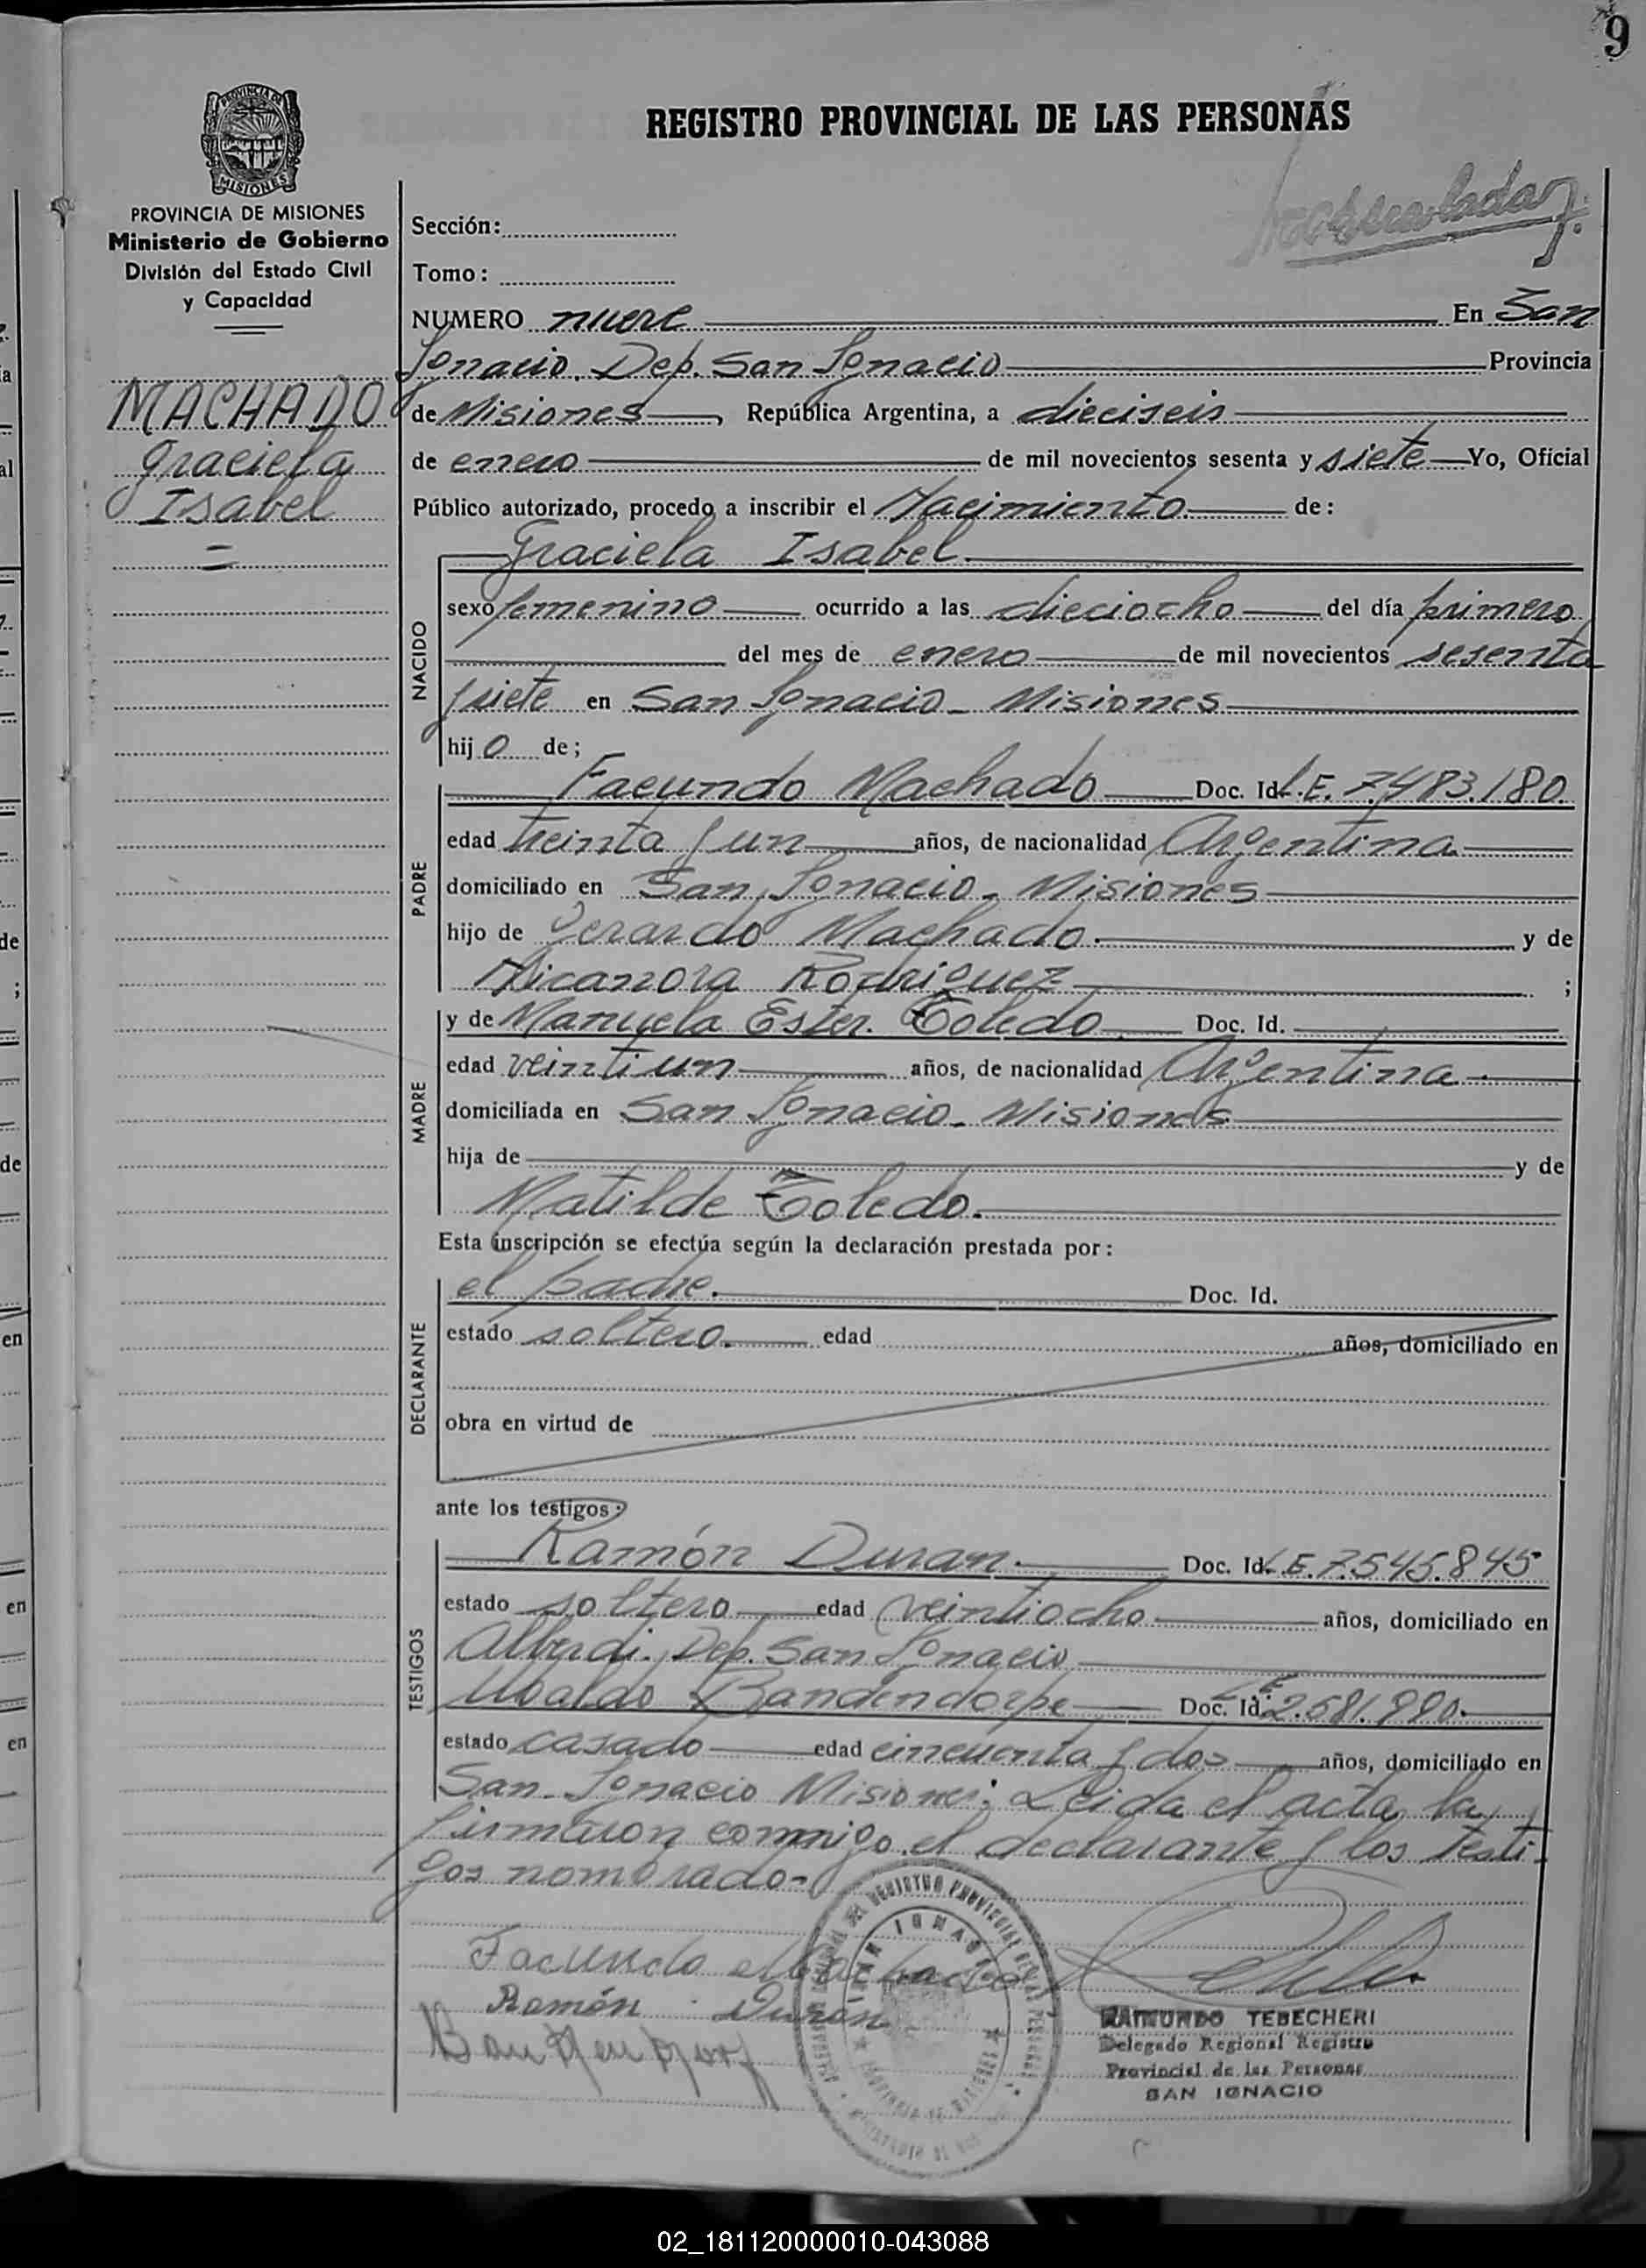 9
REGISTRO PROVINCIAL DE LAS PERSONAS
PROVINCIA DE
MISIONES
PROVINCIA DE MISIONES
Ministerio de Gobierno
División del Estado Civil
y Capacidad
MACHADO
Graciela
Isabel
Sección:
Tomo:
NUMERO nueve En San
Ignacio. Dep. San Ignacio Provincia
de Misiones, República Argentina, a dieciseis
de enero de mil novecientos sesenta y siete Yo, Oficial
Público autorizado, procedo a inscribir el Nacimiento de:
NACIDO
Graciela Isabel
sexo femenino ocurrido a las dieciocho del día primero
del mes de enero de mil novecientos sesenta
y siete en San Ignacio - Misiones
hijo de;
PADRE
Facundo Machado Doc. Id. L.E. 7.483.180.
edad treinta y un años, de nacionalidad Argentina
domiciliado en San Ignacio - Misiones
hijo de Gerardo Machado. y de
Nicanora Rodriguez ;
MADRE
y de Manuela Ester. Toledo Doc. Id.
edad veintiun años, de nacionalidad Argentina
domiciliada en San Ignacio - Misiones
hija de y de
Matilde Toledo.
Esta inscripción se efectúa según la declaración prestada por:
DECLARANTE
el padre. Doc. Id.
estado soltero. edad años, domiciliado en
obra en virtud de
ante los testigos:
TESTIGOS
Ramón Duran. Doc. Id. L.E. 7.545.845
estado soltero edad veintiocho años, domiciliado en
Alberdi. Dep. San Ignacio
Ubaldo Bandendorpe Doc. Id.
estado casado edad cincuenta y dos años, domiciliado en
San Ignacio Misiones. Leida el acta, la
firmaron conmigo, el declarante y los testi-
gos nombrado-
Facundo Machado
Ramón Duran
RAIMUNDO TEBECHERI
Delegado Regional Registro
Provincial de las Personas
SAN IGNACIO
02_181120000010-043088